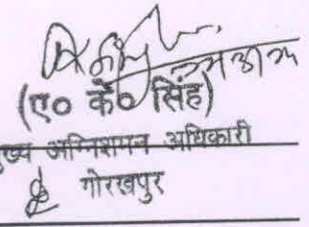 (ए० के० सिंह)
मुख्य अग्निशमन अधिकारी
गोरखपुर